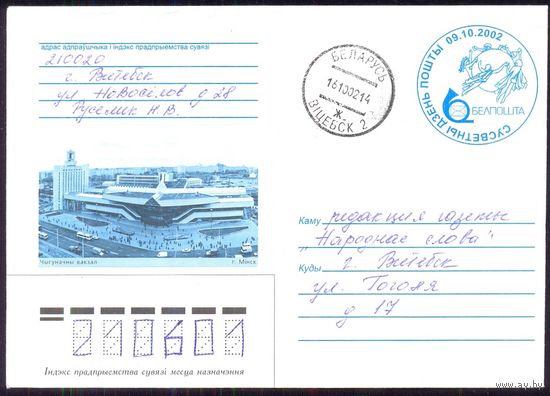 адрас адпраўшчыка і індэкс прадпрыемства сувязі
210020
г. Витебск
ул. Новосёлов д 28
Русецик Н. В.
БЕЛАРУСЬ
16100214
Ж
ВІЦЕБСК 2
09.10.2002
БЕЛПОШТА
СУСВЕТНЫ ДЗЕНЬ ПОШТЫ
Чыгуначны вакзал г. Мінск
Каму редакция газеты
„Народнае слова"
Куды г. Витебск
ул. Гоголя
д 17
210601
Індэкс прадпрыемства сувязі месца назначэння
www.ay.by